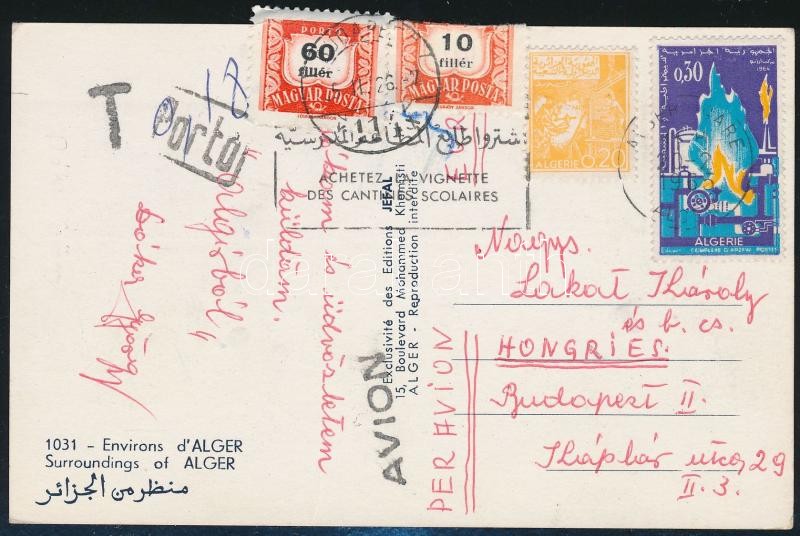 T
Portó
60
fillér
MAGYAR POSTA
10
fillér
MAGYAR POSTA
ALGERIE 0.20
1964
0,30
ALGERIE
POSTES
ACHETEZ VIGNETTE
DES CANTINES SCOLAIRES
"Algirból"
és üdvözletem
küldöm.
1031 - Environs d'ALGER
Surroundings of ALGER
منظر من الجزائر
Exclusivité des Editions JEFAL
15, Boulevard Mohammed Khemisti
ALGER - Reproduction interdite
AVION
PER AVION
Nagys.
Lakat Károly
és b. cs.
HONGRIES.
Budapest II.
Káplár utca 29
II. 3.